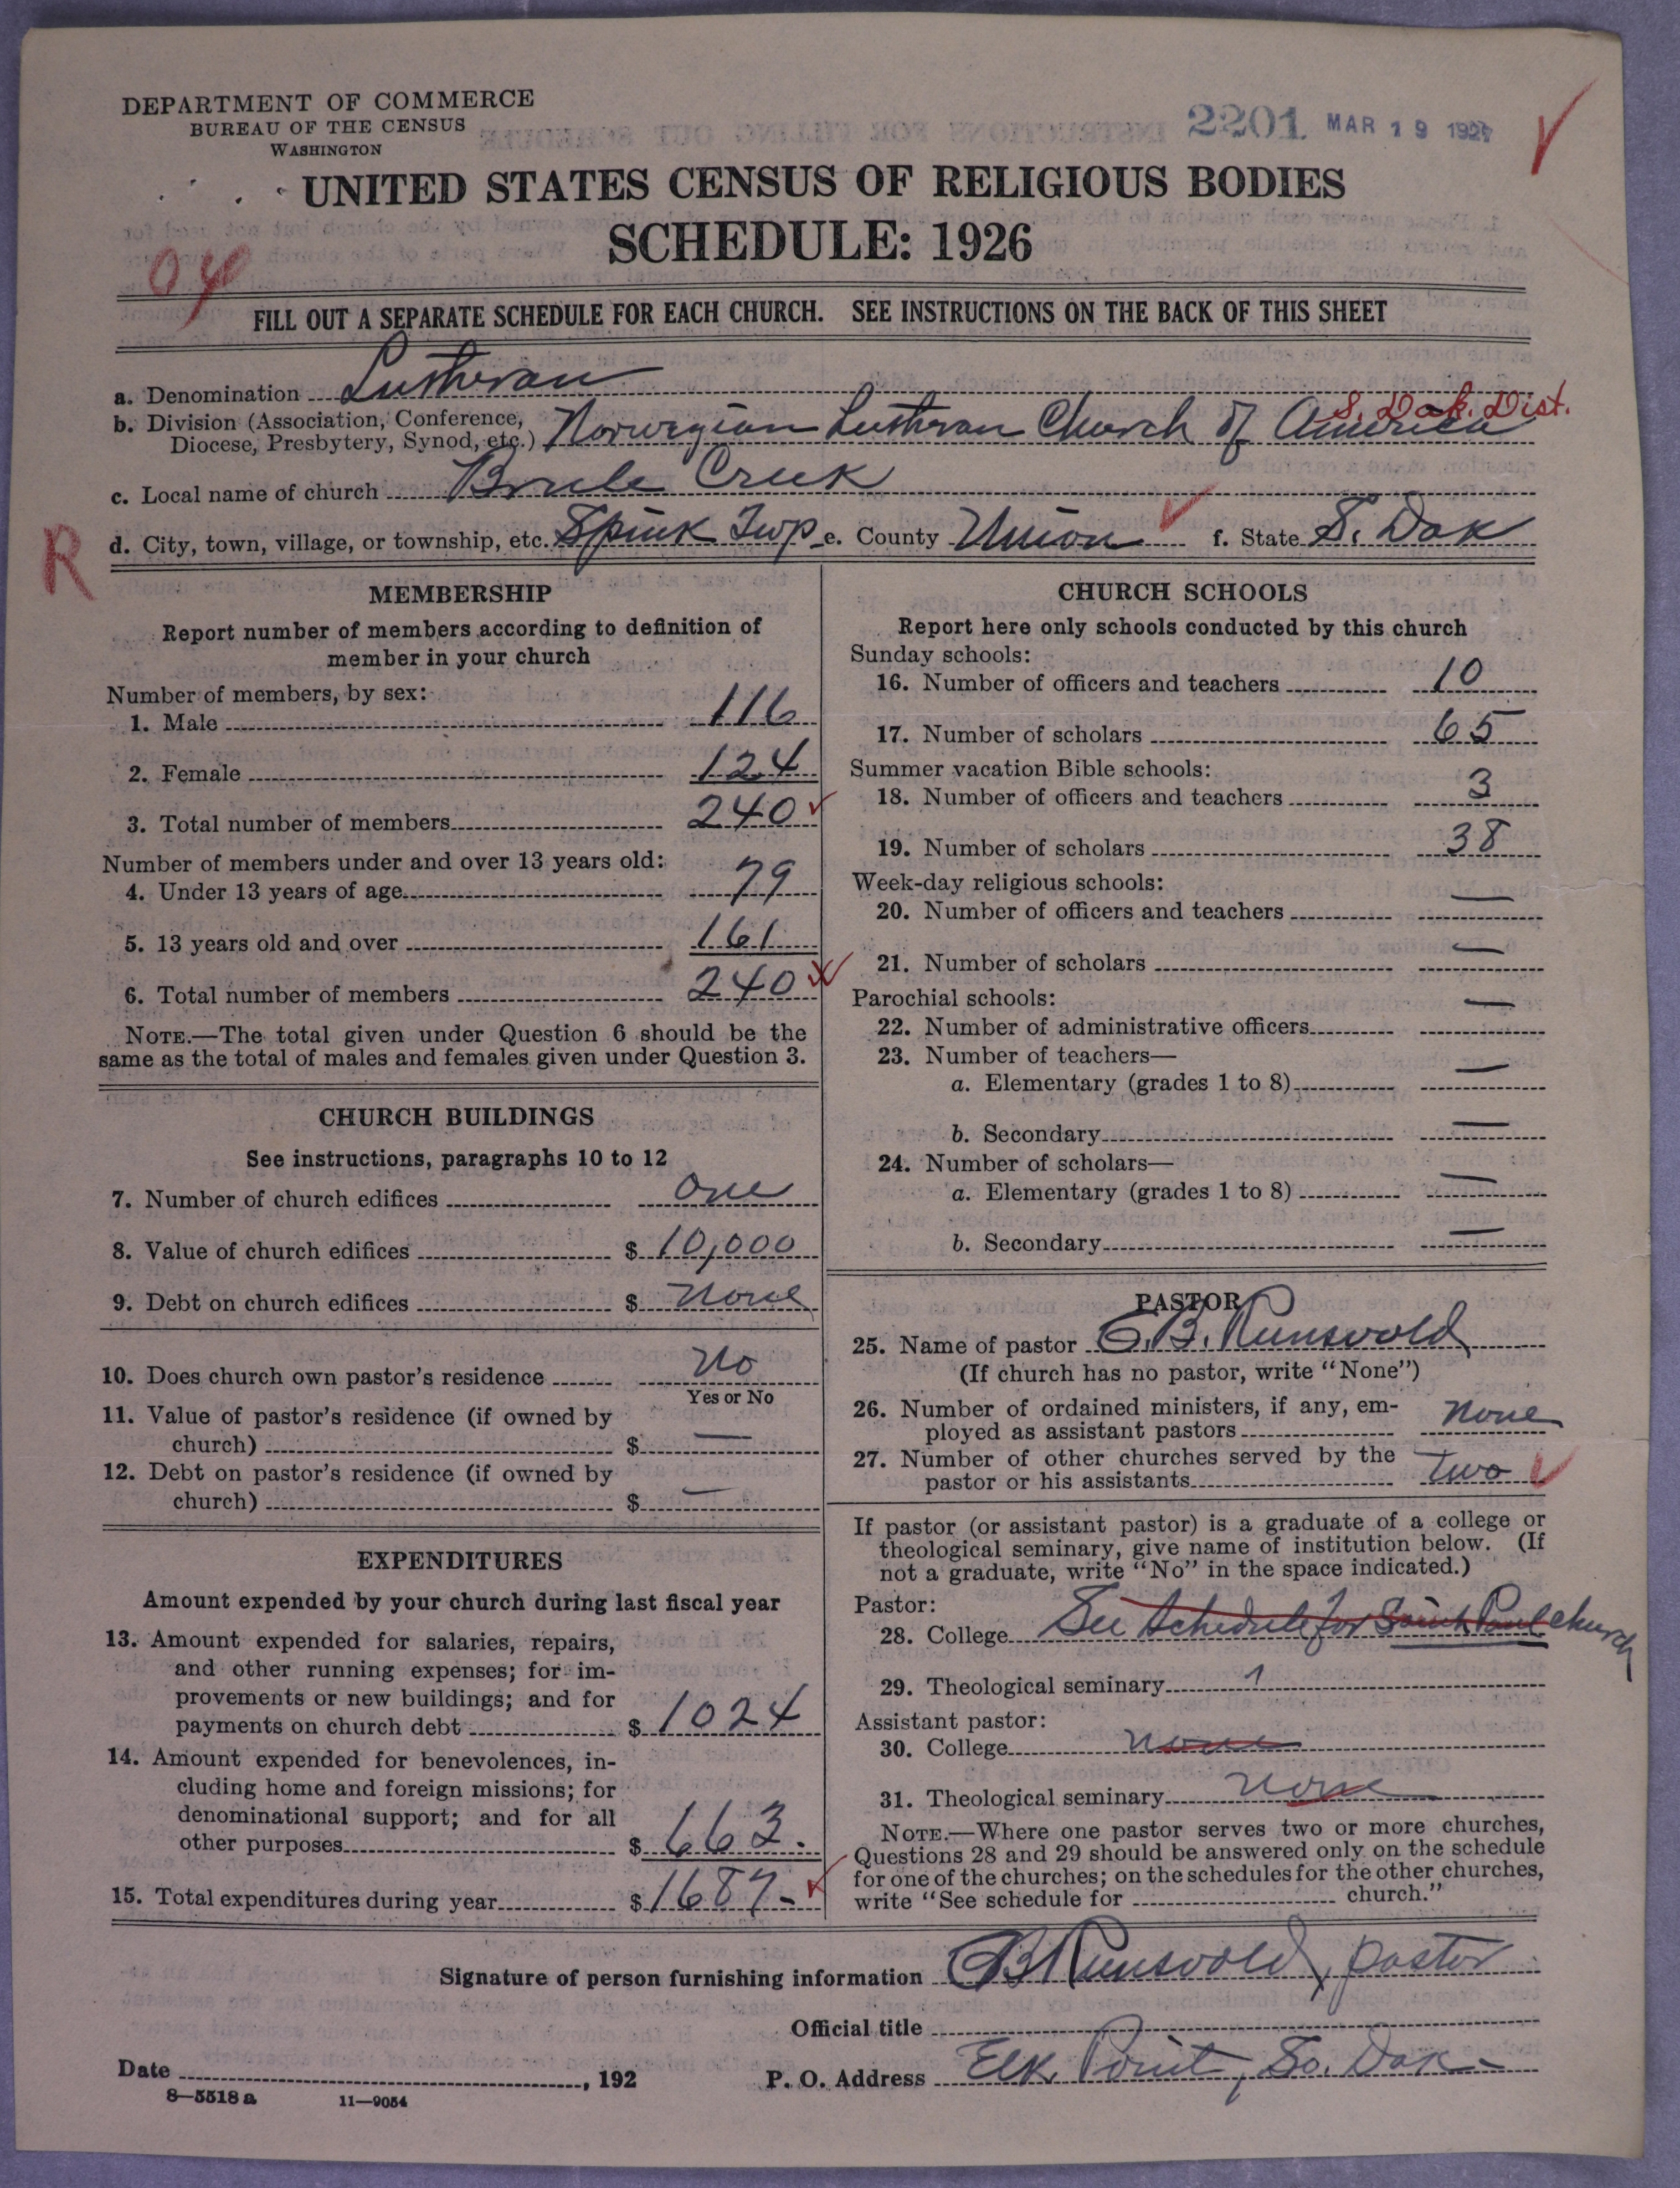 DEPARTMENT OF COMMERCE
BUREAU OF THE CENSUS
WASHINGTON
2201 MAR 19 1927
UNITED STATES CENSUS OF RELIGIOUS BODIES
SCHEDULE: 1926
04
FILL OUT A SEPARATE SCHEDULE FOR EACH CHURCH. SEE INSTRUCTIONS ON THE BACK OF THIS SHEET
a. Denomination Lutheran
S. Dak. Dist.
b. Division (Association, Conference,
Diocese, Presbytery, Synod, etc.) Norwegian Lutheran Church of America
c. Local name of church Brule Creek
R
d. City, town, village, or township, etc. Spink Twp e. County Union f. State S. Dak
MEMBERSHIP
Report number of members according to definition of
member in your church
Number of members, by sex:
1. Male 116
2. Female 124
3. Total number of members 240
Number of members under and over 13 years old:
4. Under 13 years of age 79
5. 13 years old and over 161
6. Total number of members 240
NOTE.—The total given under Question 6 should be the
same as the total of males and females given under Question 3.
CHURCH BUILDINGS
See instructions, paragraphs 10 to 12
7. Number of church edifices One
8. Value of church edifices $ 10,000
9. Debt on church edifices $ None
10. Does church own pastor's residence No
Yes or No
11. Value of pastor's residence (if owned by
church) $ —
12. Debt on pastor's residence (if owned by
church) $ —
EXPENDITURES
Amount expended by your church during last fiscal year
13. Amount expended for salaries, repairs,
and other running expenses; for im-
provements or new buildings; and for
payments on church debt $ 1024
14. Amount expended for benevolences, in-
cluding home and foreign missions; for
denominational support; and for all
other purposes $ 663.
15. Total expenditures during year $ 1687-
CHURCH SCHOOLS
Report here only schools conducted by this church
Sunday schools:
16. Number of officers and teachers 10
17. Number of scholars 65
Summer vacation Bible schools:
18. Number of officers and teachers 3
19. Number of scholars 38
Week-day religious schools:
20. Number of officers and teachers —
21. Number of scholars —
Parochial schools:
22. Number of administrative officers —
23. Number of teachers—
a. Elementary (grades 1 to 8) —
b. Secondary —
24. Number of scholars—
a. Elementary (grades 1 to 8) —
b. Secondary —
PASTOR
25. Name of pastor E.B. Runsvold
(If church has no pastor, write "None")
26. Number of ordained ministers, if any, em-
ployed as assistant pastors None
27. Number of other churches served by the
pastor or his assistants Two
If pastor (or assistant pastor) is a graduate of a college or
theological seminary, give name of institution below. (If
not a graduate, write "No" in the space indicated.)
Pastor:
28. College See Schedule for Saint Paul church
29. Theological seminary 1
Assistant pastor:
30. College None
31. Theological seminary None
NOTE.—Where one pastor serves two or more churches,
Questions 28 and 29 should be answered only on the schedule
for one of the churches; on the schedules for the other churches,
write "See schedule for church."
Signature of person furnishing information EB Runsvold, pastor
Official title
Date , 192 P. O. Address Elk Point, So. Dak-
8—5518 a 11—9054